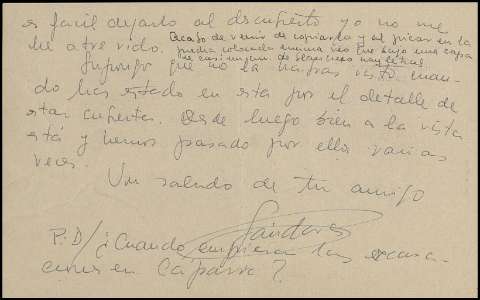 es facil dejarlo al descubierto yo no me
he atrevido. Acabo de venir de copiarla y al picar en la
piedra colocada encima veo que bajo una capa
de cal hay letras
Supongo que no la hayas visto cuan-
do has estado en esta por el detalle de
estar cubierta. Desde luego bien a la vista
está y hemos pasado por ella varias
veces.
Un saludo de tu amigo
Sándoval
P.D/ ¿Cuando empiezan las excava-
ciones en Caparra?